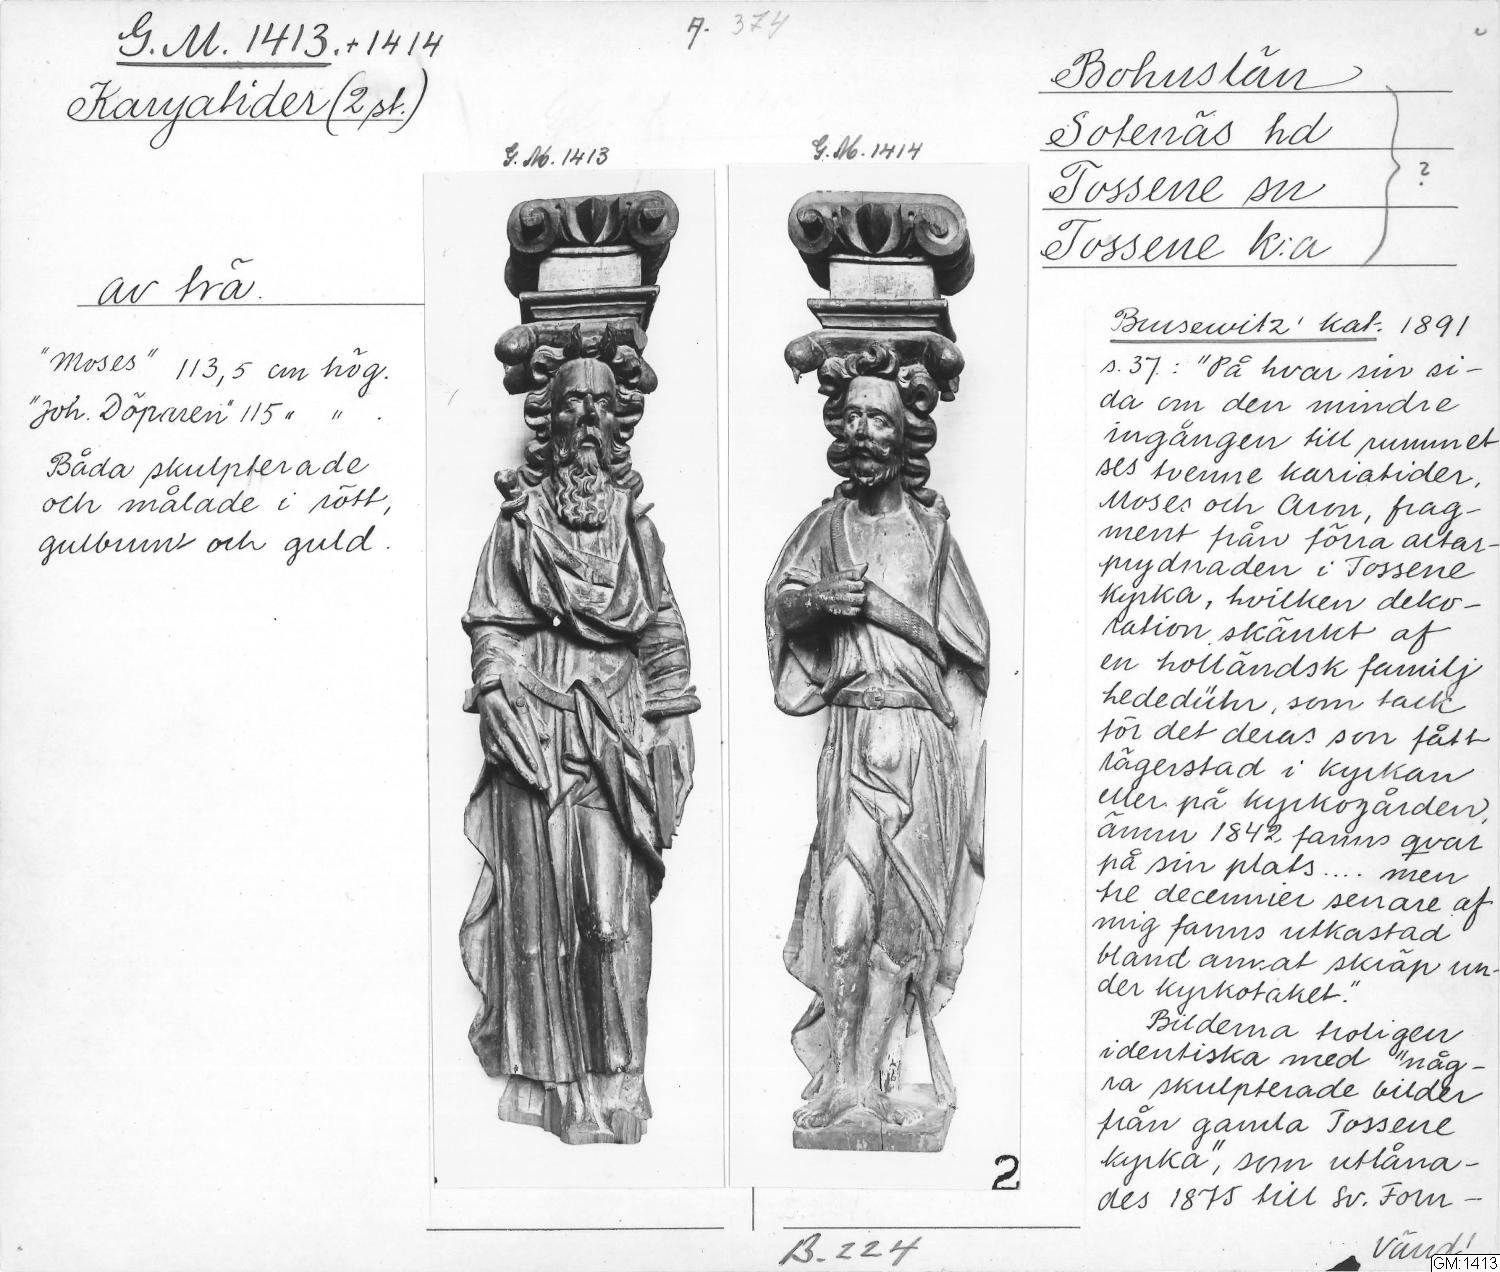 G.M. 1413.+1414
Karyatider (2 st.)
A. 374
Bohuslän
Sotenäs hd
Tossene sn
Tossene k:a
?
G.M. 1413
G.M. 1414
av trä.
"Moses" 113,5 cm hög.
"Joh. Döparen" 115 " " .
Båda skulpterade
och målade i rött,
gulbrunt och guld.
Brusewitz' kat. 1891
s. 37. : "På hvar sin si-
da om den mindre
ingången till rummet
ses tvenne kariatider,
Moses och Aron, frag-
ment från förra altar-
prydnaden i Tossene
kyrka, hvilken deko-
ration skänkt af
en holländsk familj
hededühr, som tack
för det deras son fått
lägerstad i kyrkan
eller på kyrkogården,
ännu 1842 fanns qvar
på sin plats .... men
tre decennier senare af
mig fanns utkastad
bland annat skräp un-
der kyrkotaket."
Bilderna troligen
identiska med "någ-
ra skulpterade bilder
från gamla Tossene
kyrka", som utlåna-
des 1875 till Sv. Forn-
Vänd!
2
B. 224
GM:1413